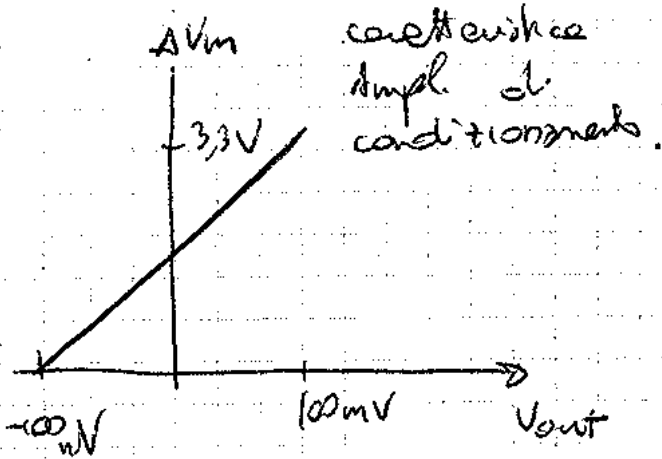 ΔVin
caratteristica
Ampl. di
condizionamento.
3,3V
-100 mV
100mV
Vout